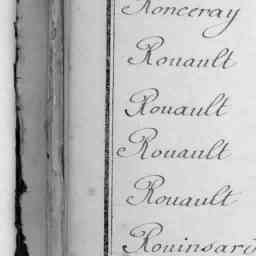 Ronceray
Rouault
Rouault
Rouault
Rouault
Rouinsard